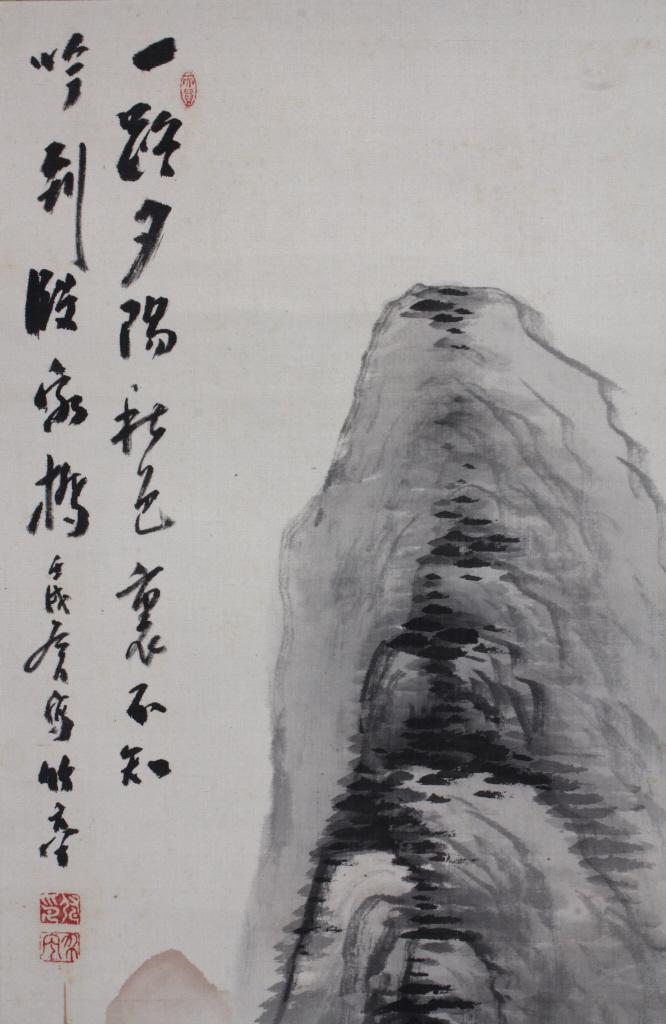 一路夕陽秋色裏不知
吟到段家橋壬戌春寫竹亭